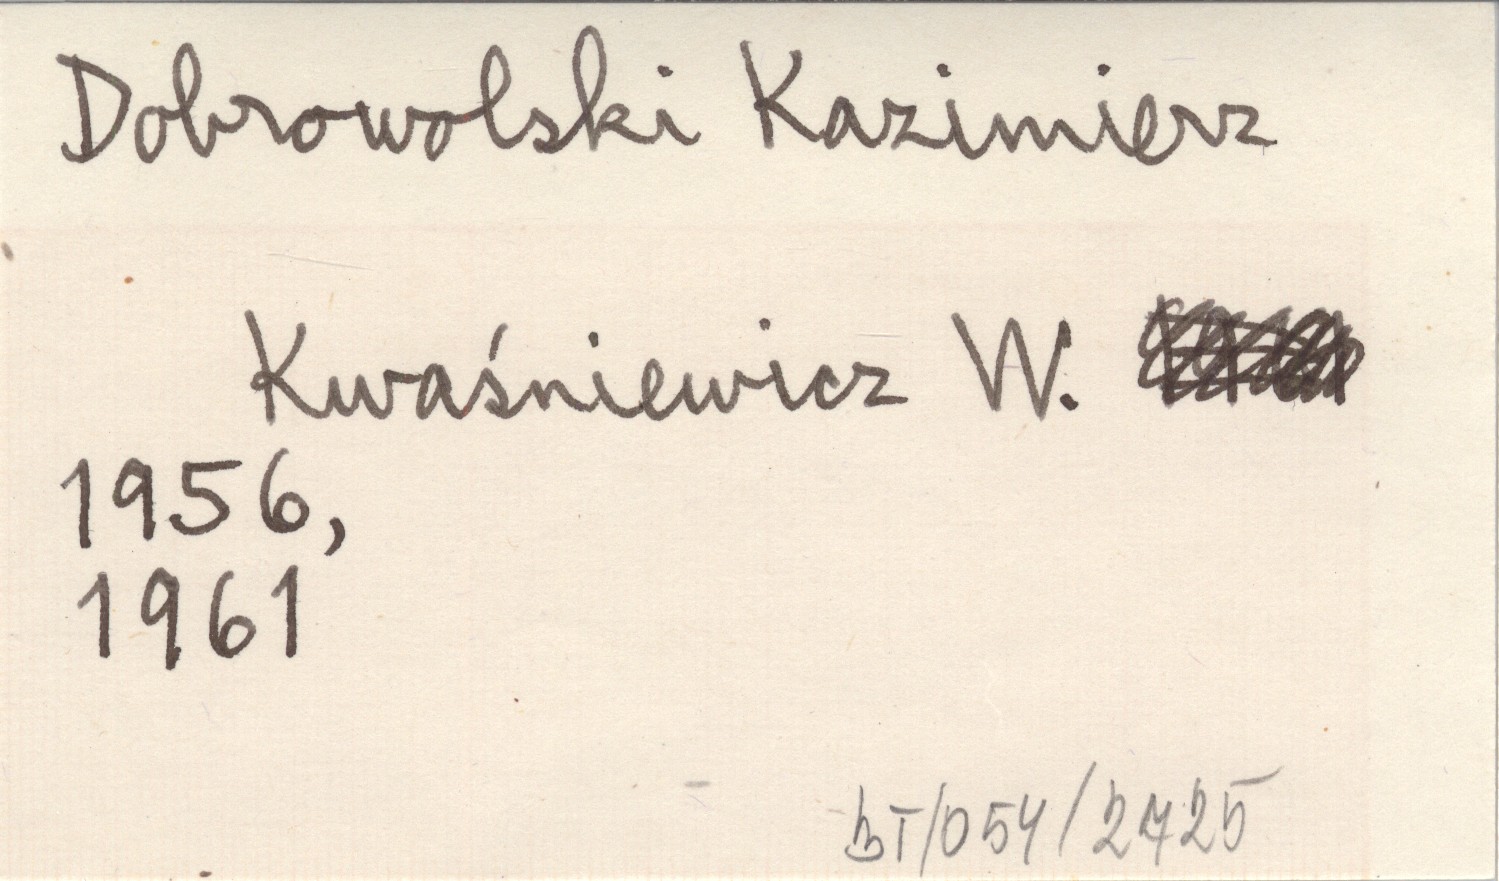 Dobrowolski Kazimierz
Kwaśniewicz W.
1956,
1961
BT/054/2725